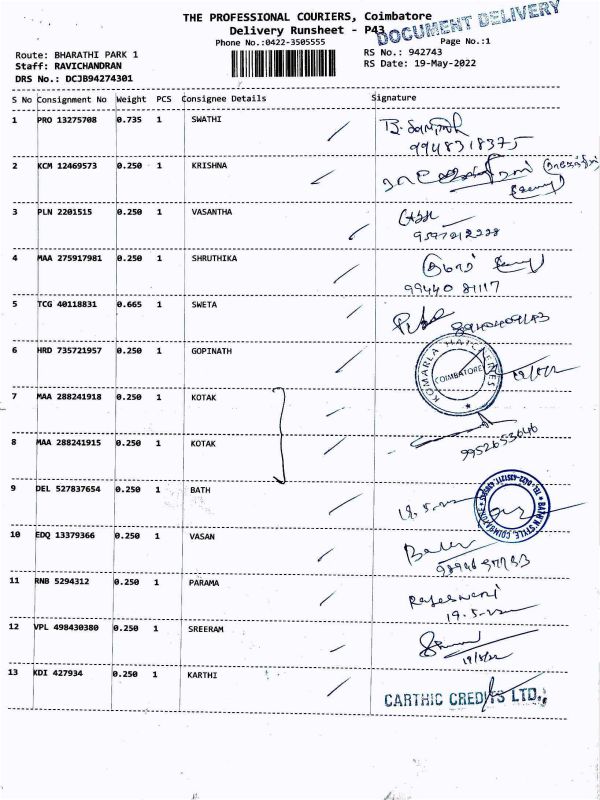 THE PROFESSIONAL COURIERS, Coimbatore
Delivery Runsheet - P43
DOCUMENT DELIVERY
Phone No.:0422-3505555
Page No.:1
Route: BHARATHI PARK 1
RS No.: 942743
Staff: RAVICHANDRAN
RS Date: 19-May-2022
DRS No.: DCJB94274301
S No Consignment No Weight PCS Consignee Details Signature
1 PRO 13275708 0.735 1 SWATHI
9948318375
2 KCM 12469573 0.250 1 KRISHNA
3 PLN 2201515 0.250 1 VASANTHA
4 MAA 275917981 0.250 1 SHRUTHIKA
99440 81117
5 TCG 40118831 0.665 1 SWETA
6 HRD 735721957 0.250 1 GOPINATH
COIMBATORE
7 MAA 288241918 0.250 1 KOTAK
8 MAA 288241915 0.250 1 KOTAK
9952653646
9 DEL 527837654 0.250 1 BATH
BATH N STYLE, COIMBATORE
10 EDQ 13379366 0.250 1 VASAN
11 RNB 5294312 0.250 1 PARAMA
Rajeswari
19.5.22
12 VPL 498430380 0.250 1 SREERAM
19/5/22
13 KDI 427934 0.250 1 KARTHI
CARTHIC CREDITS LTD.,